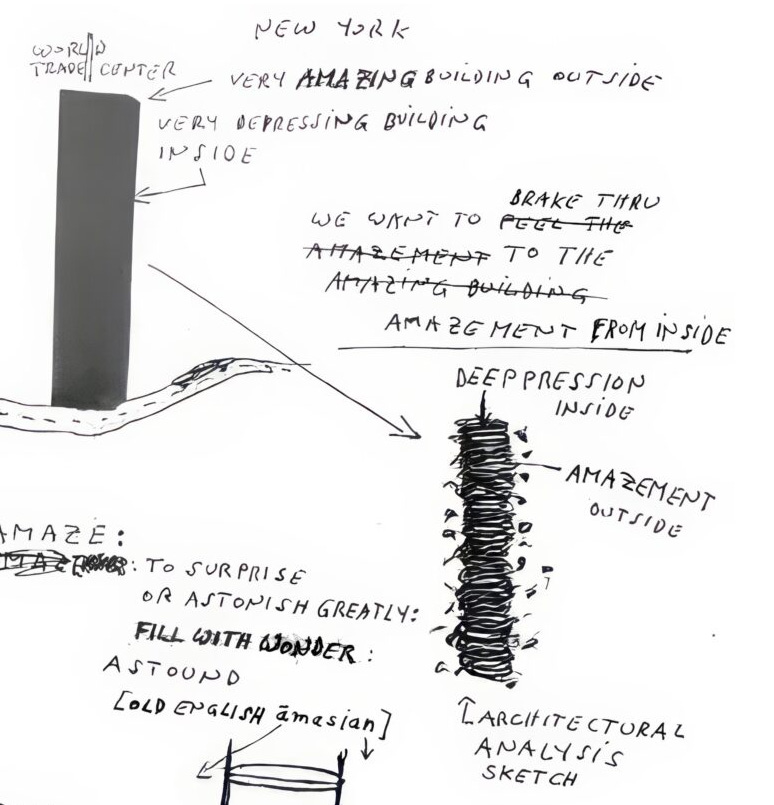 NEW YORK
WORLD
TRADE CENTER
VERY AMAZING BUILDING OUTSIDE
VERY DEPRESSING BUILDING
INSIDE
BRAKE THRU
WE WANT TO FEEL THE
AMAZEMENT TO THE
AMAZING BUILDING
AMAZEMENT FROM INSIDE
DEEPPRESSION
INSIDE
AMAZEMENT
OUTSIDE
AMAZE:
: TO SURPRISE
OR ASTONISH GREATLY:
FILL WITH WONDER:
ASTOUND
[OLD ENGLISH āmasian]
ARCHITECTURAL
ANALYSIS
SKETCH